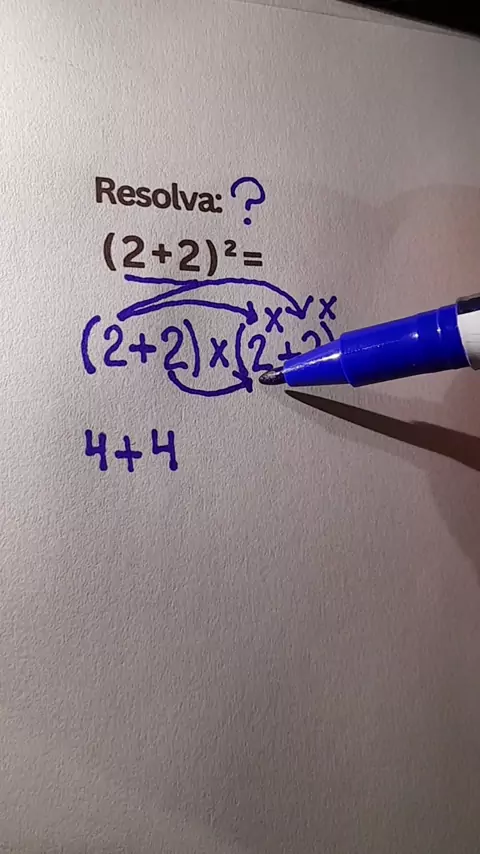 Resolva: ?
(2+2)²=
x x
(2+2)x(2+2)
4+4